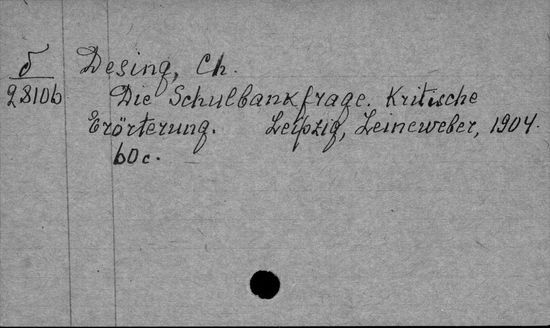 δ
28106
Desing, Ch.
Die Schulbankfrage. Kritische
Erörterung. Leipzig, Leineweber, 1904.
60c.